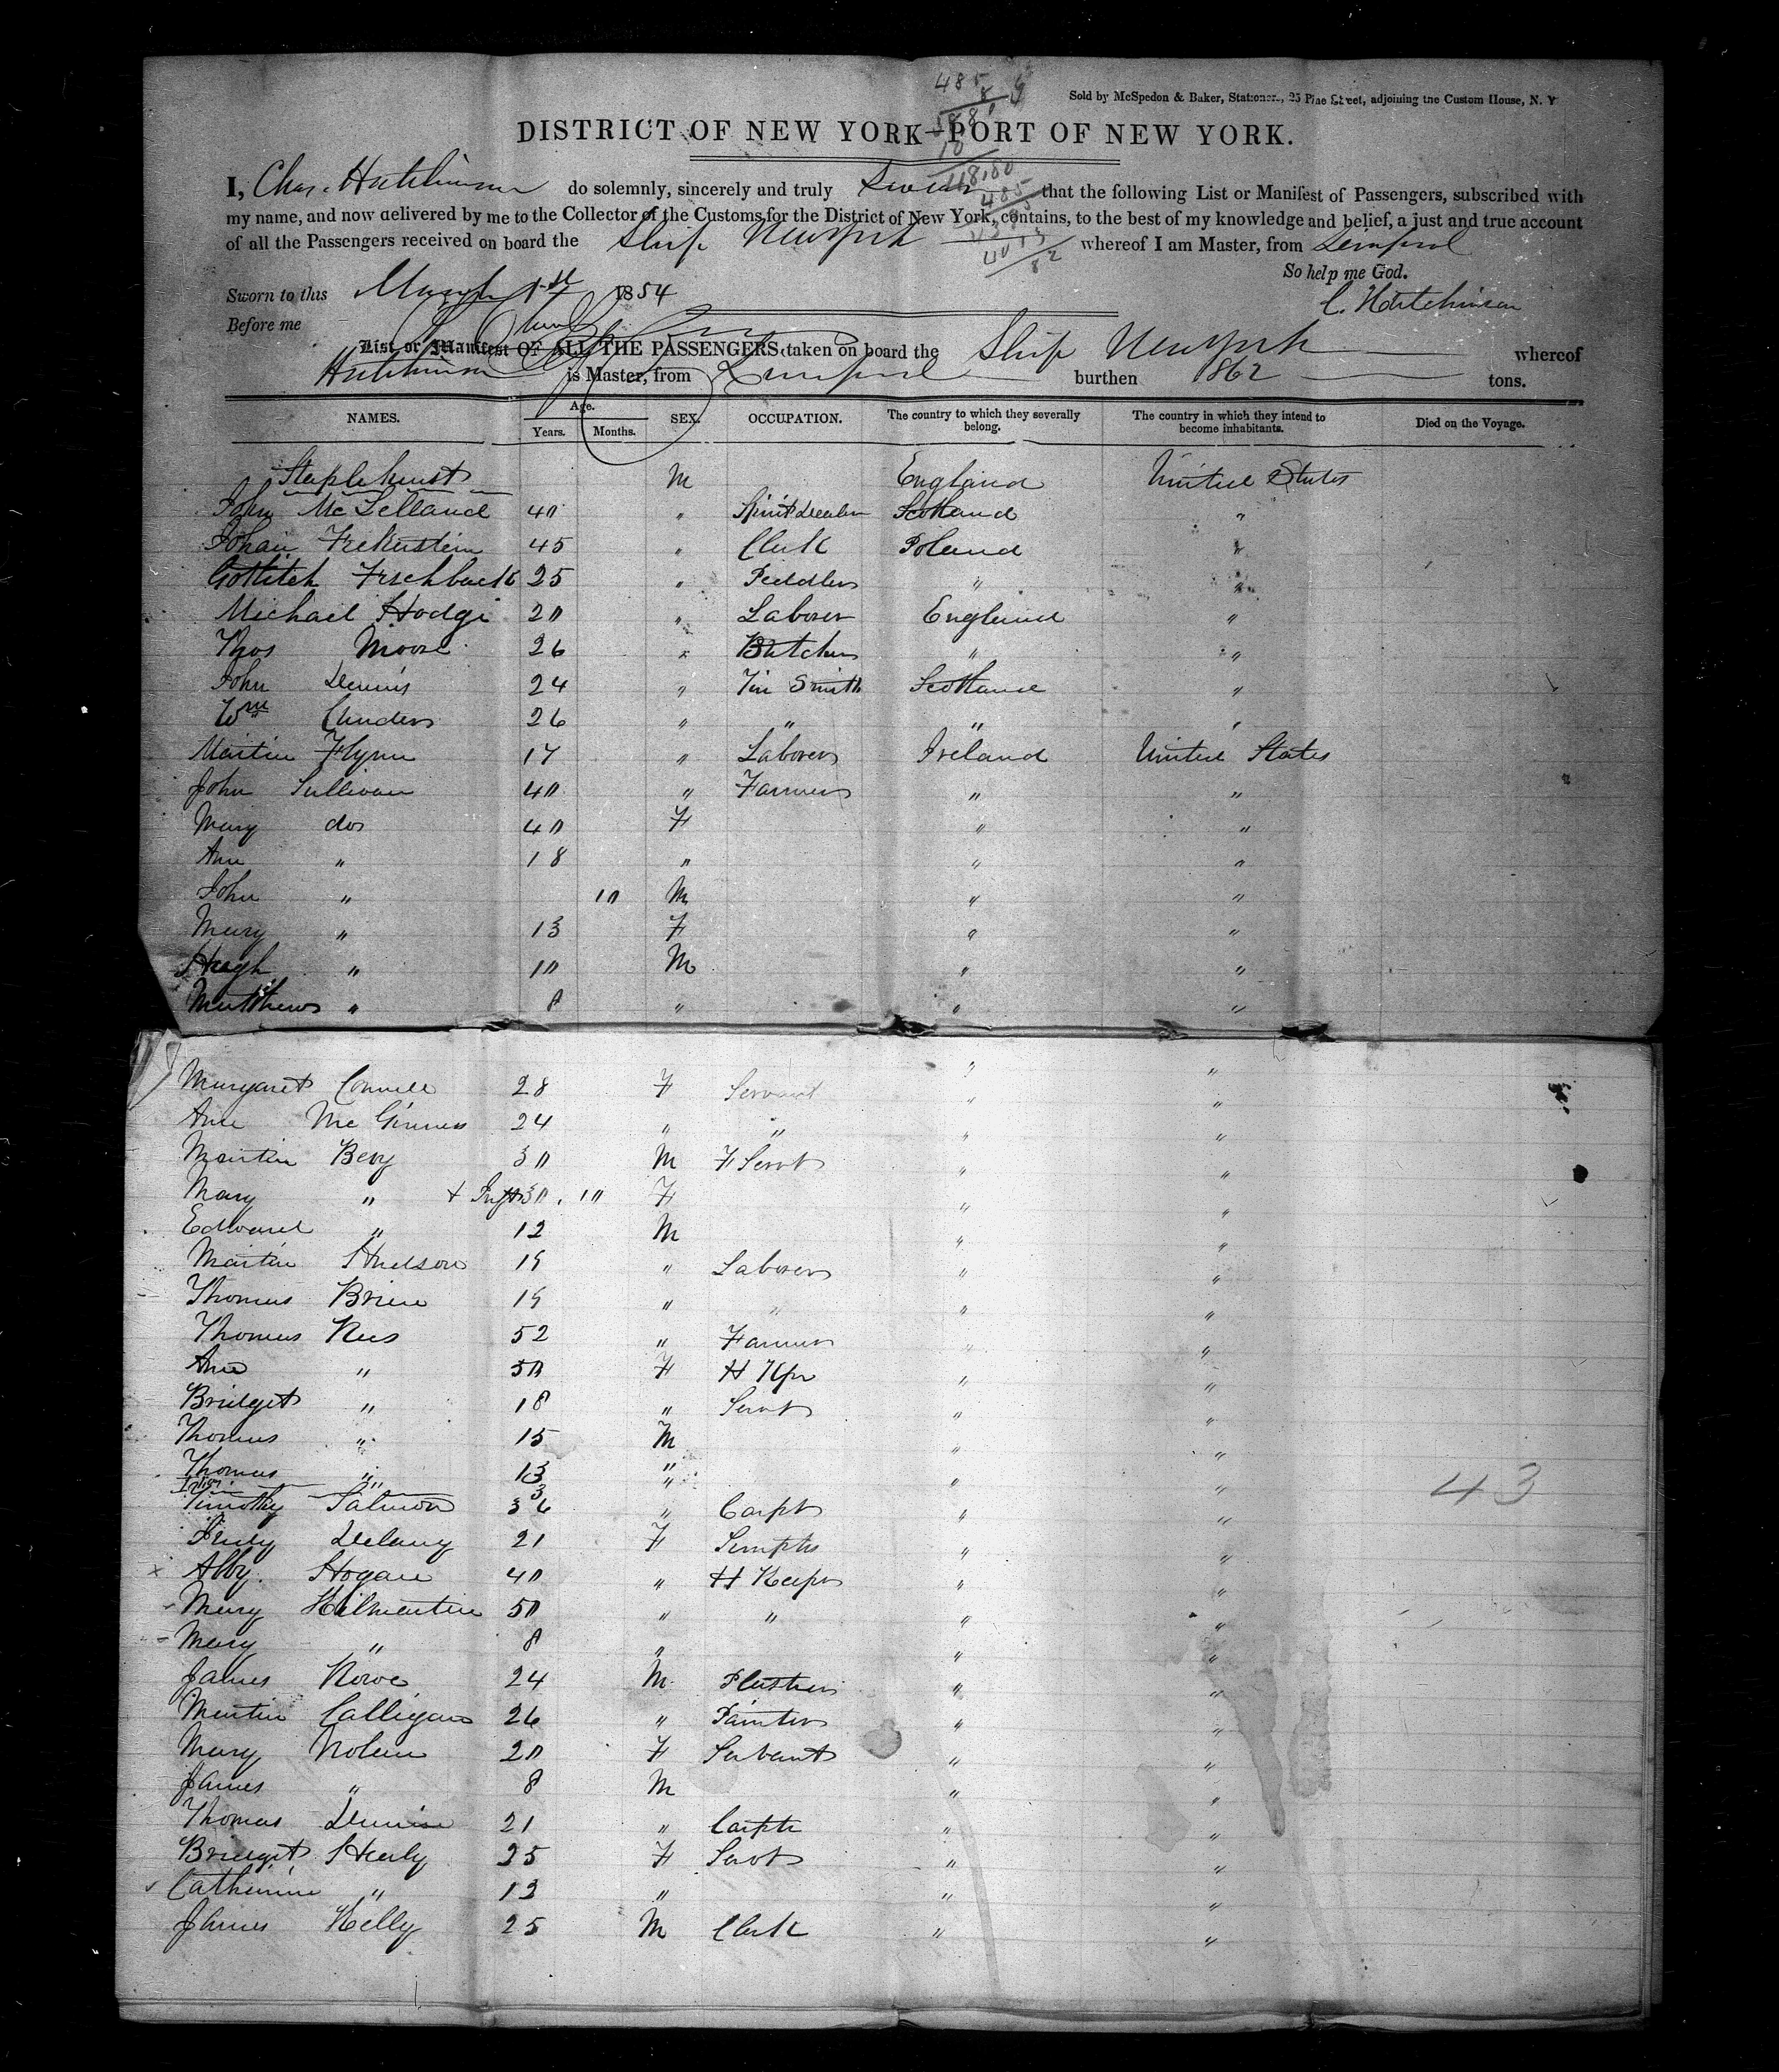 Sold by McSpedon & Baker, Stationers, 25 Pine Street, adjoining the Custom House, N. Y
DISTRICT OF NEW YORK—PORT OF NEW YORK.
I, Chas. Hutchinson do solemnly, sincerely and truly Swear that the following List or Manifest of Passengers, subscribed with
my name, and now delivered by me to the Collector of the Customs for the District of New York, contains, to the best of my knowledge and belief, a just and true account
of all the Passengers received on board the Ship New York whereof I am Master, from Liverpool
So help me God.
Sworn to this March 1st 1854
C. Hutchinson
Before me
List or Manifest OF ALL THE PASSENGERS taken on board the Ship New York whereof
Hutchinson is Master, from Liverpool burthen 1862 tons.
NAMES. Age. Years. Months. SEX. OCCUPATION. The country to which they severally belong. The country in which they intend to become inhabitants. Died on the Voyage.
Staplehurst M England United States
John McLelland 40 " Spirit Dealer Scotland "
45 " Clerk Poland "
25 " Peddler " "
Michael Hodge 20 " Laborer England "
Thos Moore 26 " Butcher " "
John Dennis 24 " Tin Smith Scotland "
Wm 26 " " " "
Martin Flynn 17 " Laborer Ireland United States
John Sullivan 40 " Farmer " "
Mary do 40 F " "
Ann " 18 " " "
John " 10 M " "
Mary " 13 F " "
Hugh " 10 M " "
Matthew " 8 " " "
Margaret Connell 28 F Servant " "
Ann McGinness 24 " " " "
Martin Bevy 30 M F Servt " "
Mary " + Inft 30 10 F " "
Edward " 12 M " "
Martin Hudson 19 " Laborer " "
Thomas Brien 19 " " " "
Thomas Nees 52 " Farmer " "
Ann " 50 F H Kpr " "
Bridget " 18 " Servt " "
Thomas " 15 M " "
Thomas " 13 " " "
Timothy Salmon 36 " Carpt " "
43
Judy Delany 21 F " "
Abby Hogan 40 " H Keepr " "
Mary Kilmartin 50 " " " "
Mary " 8 " " "
James Rowe 24 M Plasterer " "
Martin Calligan 26 " Painter " "
Mary Nolan 20 F Servant " "
James " 8 M " "
Thomas 21 " Carptr " "
Bridget Healy 25 F Servt " "
Catherine " 12 " " "
James Kelly 25 M Clerk " "